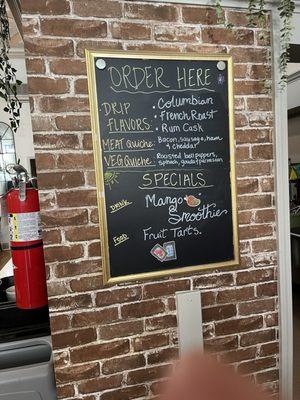 ORDER HERE
DRIP FLAVORS: • Columbian
• French Roast
• Rum Cask
MEAT Quiche: Bacon, sausage, ham
& cheddar
VEG Quiche: Roasted bell peppers,
spinach, gouda+parmesan
SPECIALS
DRINK Mango
Smoothie
FOOD Fruit Tarts.